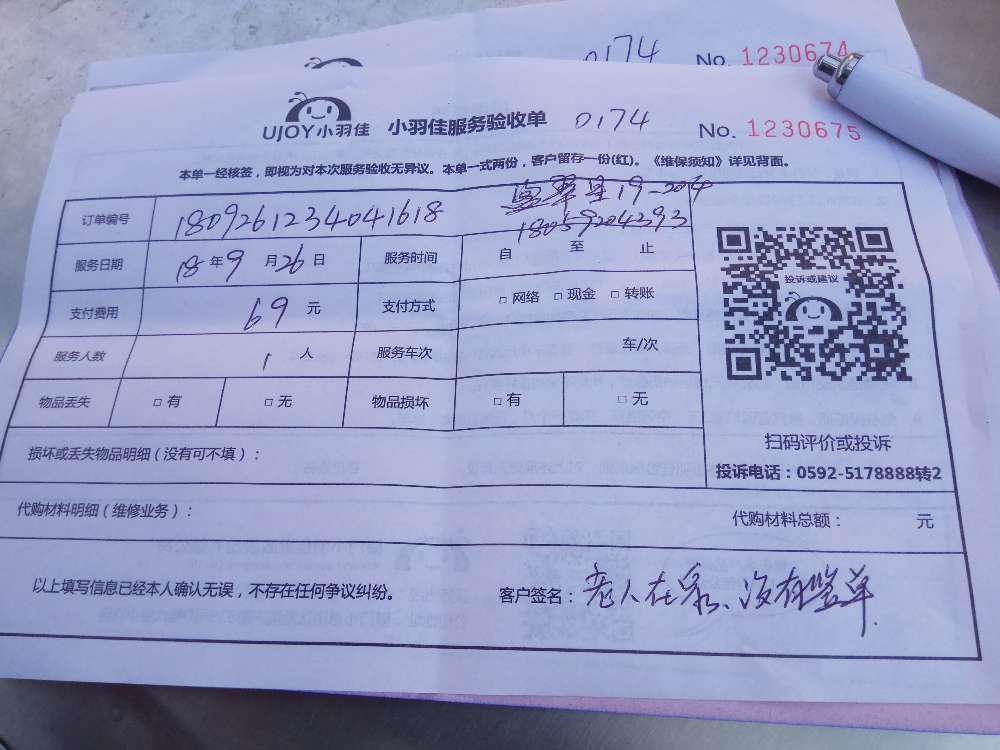 0174
No. 1230674
UJOY小羽佳 小羽佳服务验收单 0174 No. 1230675
本单一经核签，即视为对本次服务验收无异议。本单一式两份，客户留存一份(红)。《维保须知》详见背面。
翠星19-204
订单编号 1809261234041618 18059204293
服务日期 18年9月26日 服务时间 自 至 止
支付费用 69 元 支付方式 □ 网络 □ 现金 □ 转账
服务人数 1 人 服务车次 车/次
物品丢失 □ 有 □ 无 物品损坏 □ 有 □ 无
投诉或建议
扫码评价或投诉
投诉电话：0592-5178888转2
损坏或丢失物品明细（没有可不填）：
代购材料明细（维修业务）： 代购材料总额： 元
以上填写信息已经本人确认无误，不存在任何争议纠纷。 客户签名：老人在家、没有签单.